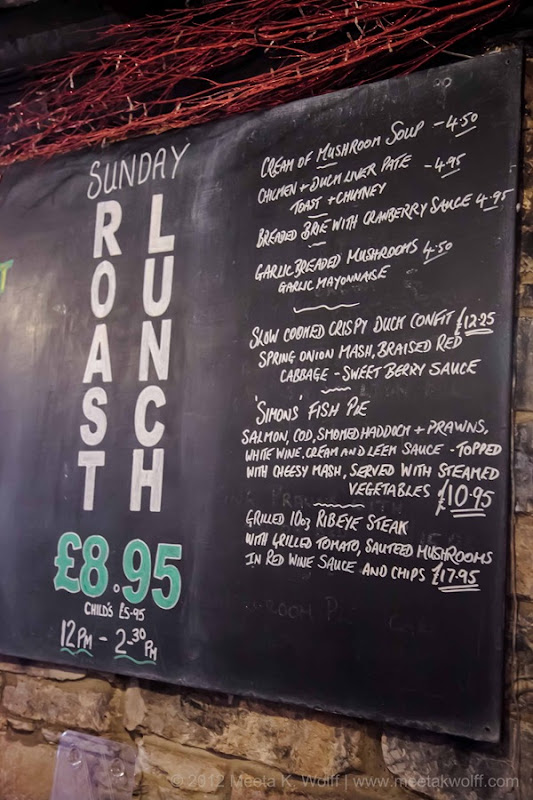 SUNDAY
ROAST
LUNCH
£8.95
CHILD'S £5.95
12PM - 2-30 PM
CREAM OF MUSHROOM SOUP - 4.50
CHICKEN + DUCK LIVER PATE - 4.95
TOAST + CHUTNEY
BREADED BRIE WITH CRANBERRY SAUCE 4.95
GARLIC BREADED MUSHROOMS 4.50
GARLIC MAYONNAISE
SLOW COOKED CRISPY DUCK CONFIT £12.25
SPRING ONION MASH, BRAISED RED
CABBAGE - SWEET BERRY SAUCE
'SIMONS' FISH PIE
SALMON, COD, SMOKED HADDOCK + PRAWNS,
WHITE WINE, CREAM AND LEEK SAUCE - TOPPED
WITH CHEESY MASH, SERVED WITH STEAMED
VEGETABLES £10.95
GRILLED 10oz RIBEYE STEAK
WITH GRILLED TOMATO, SAUTEED MUSHROOMS
IN RED WINE SAUCE AND CHIPS £17.95
© 2012 Meeta K. Wolff | www.meetakwolff.com